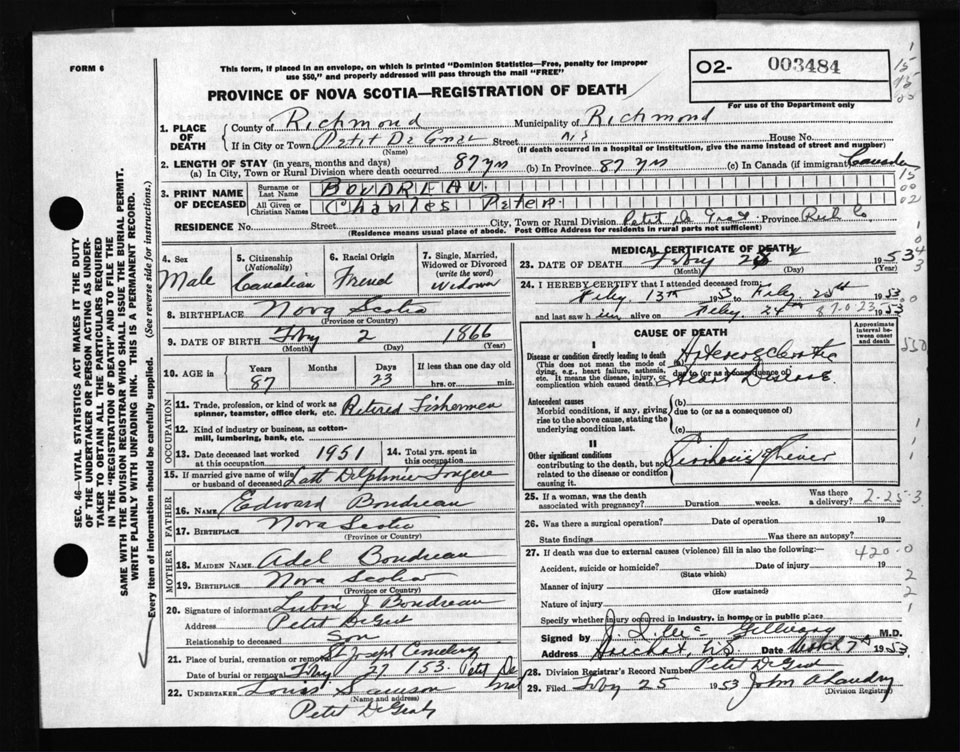 FORM 6
This form, if placed in an envelope, on which is printed "Dominion Statistics—Free, penalty for improper
use $50," and properly addressed will pass through the mail "FREE"
O2- 003484
For use of the Department only
PROVINCE OF NOVA SCOTIA—REGISTRATION OF DEATH
1. PLACE OF DEATH
County of Richmond Municipality of Richmond
If in City or Town Petit De Grat Street N.S House No.
(Name) (If death occurred in a hospital or institution, give the name instead of street and number)
2. LENGTH OF STAY (in years, months and days)
(a) In City, Town or Rural Division where death occurred 87 yrs (b) In Province 87 yrs (c) In Canada (if immigrant) Canada
3. PRINT NAME OF DECEASED
Surname or Last Name BOUDREAU.
All Given or Christian Names Charles Peter.
RESIDENCE No. Street City, Town or Rural Division Petit De Grat Province Rich Co
(Residence means usual place of abode. Post Office Address for residents in rural parts not sufficient)
4. Sex Male
5. Citizenship (Nationality) Canadian
6. Racial Origin French
7. Single, Married, Widowed or Divorced (write the word) Widower
8. BIRTHPLACE Nova Scotia
(Province or Country)
9. DATE OF BIRTH Feby 2 1866
(Month) (Day) (Year)
10. AGE in Years Months Days If less than one day old
87 23 hrs. or min.
OCCUPATION
11. Trade, profession, or kind of work as spinner, teamster, office clerk, etc. Retired Fisherman
12. Kind of industry or business, as cotton-mill, lumbering, bank, etc.
13. Date deceased last worked at this occupation 1951
14. Total yrs. spent in this occupation
15. If married give name of wife or husband of deceased Late Delphnie
FATHER
16. Name Edward Boudreau
17. Birthplace Nova Scotia
(Province or Country)
MOTHER
18. MAIDEN NAME Adel Boudreau
19. Birthplace Nova Scotia
(Province or Country)
20. Signature of informant J Boudreau
Address Petit DeGrat
Relationship to deceased Son
21. Place of burial, cremation or removal St Joseph Cemetery
Date of burial or removal Feby 27 153. Petit De Grat
22. UNDERTAKER Louis Samson
(Name and address)
Petit DeGrat
SEC. 46—VITAL STATISTICS ACT MAKES IT THE DUTY
OF THE UNDERTAKER OR PERSON ACTING AS UNDER-
TAKER TO OBTAIN ALL THE PARTICULARS REQUIRED
IN THE "REGISTRATION OF DEATH" AND TO FILE THE
SAME WITH THE DIVISION REGISTRAR WHO SHALL ISSUE THE BURIAL PERMIT.
WRITE PLAINLY WITH UNFADING INK. THIS IS A PERMANENT RECORD.
Every item of information should be carefully supplied. (See reverse side for instructions.)
MEDICAL CERTIFICATE OF DEATH
23. DATE OF DEATH Feby 1953
(Month) (Day) (Year)
24. I HEREBY CERTIFY that I attended deceased from
Feby. 13th 1953 to Feby 25th 1953
and last saw him alive on Feby. 24 1953
87-0-23
CAUSE OF DEATH
Approximate interval between onset and death
I
Disease or condition directly leading to death
(This does not mean the mode of dying, e.g., heart failure, asthenia, etc. It means the disease, injury, or complication which caused death.)
(a)
due to (or as a consequence of) Heart Disease
Antecedent causes
Morbid conditions, if any, giving rise to the above cause, stating the underlying condition last.
(b)
due to (or as a consequence of)
(c)
II
Other significant conditions
contributing to the death, but not related to the disease or condition causing it.
25. If a woman, was the death associated with pregnancy? Duration weeks. Was there a delivery? 2-25-3
26. Was there a surgical operation? Date of operation 19
State findings Was there an autopsy?
27. If death was due to external causes (violence) fill in also the following:— 420-0
Accident, suicide or homicide? Date of injury 19
(State which)
Manner of injury
(How sustained)
Nature of injury
Specify whether injury occurred in industry, in home, or in public place
Signed by M.D.
Address Arichat, N.S. Date March 7th 1953
28. Division Registrar's Record Number Petit DeGrat
29. Filed Feby 25 1953 John A Landry
(Division Registrar)